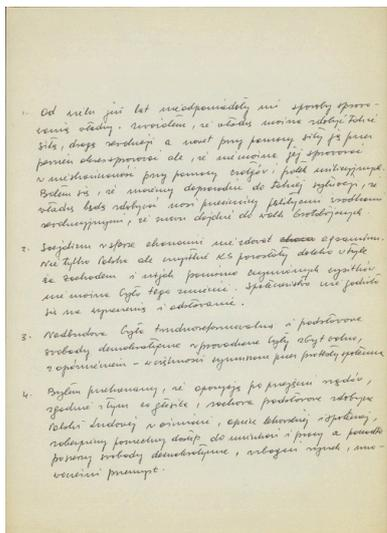 1. Od wielu już lat nie odpowiadały mi sposoby sprawo-
wania władzy. Uważałem, że władzę można zdobyć także
siłą, drogą rewolucji a nawet przy pomocy siły ją przez
pewien okres sprawować ale, że nie można jej sprawować
w nieskończoność przy pomocy czołgów i pałek milicyjnych.
Bałem się, że możemy doprowadzić do takiej sytuacji, że
władzę będą zdobywać nasi przeciwnicy politycznymi środkami
rewolucyjnymi, że znowu dojdzie do walk bratobójczych.
2. Socjalizm w sferze ekonomii nie zdawał egzaminu.
Nie tylko Polska ale wszystkie KS pozostały daleko w tyle
za zachodem i mimo ponawianych wysiłków
nie można było tego zmienić. Społeczeństwo nie godziło
się na wyrzeczenia i odstawanie.
3. Nadbudowa była trudnoreformowalna i podstawowe
swobody demokratyczne wprowadzane były zbyt wolno,
z opóźnieniem - w większości wymuszone przez protesty społeczne
4. Byłem przekonany, że opozycja po przejęciu rządów,
zgodnie z tym co głosiła, zachowa podstawowe zdobycze
Polski Ludowej w oświacie, opiece lekarskiej i społecznej,
zabezpieczy powszechny dostęp do mieszkań i pracy a ponadto
poszerzy swobody demokratyczne, wzbogaci rynek, uno-
wocześni przemysł.